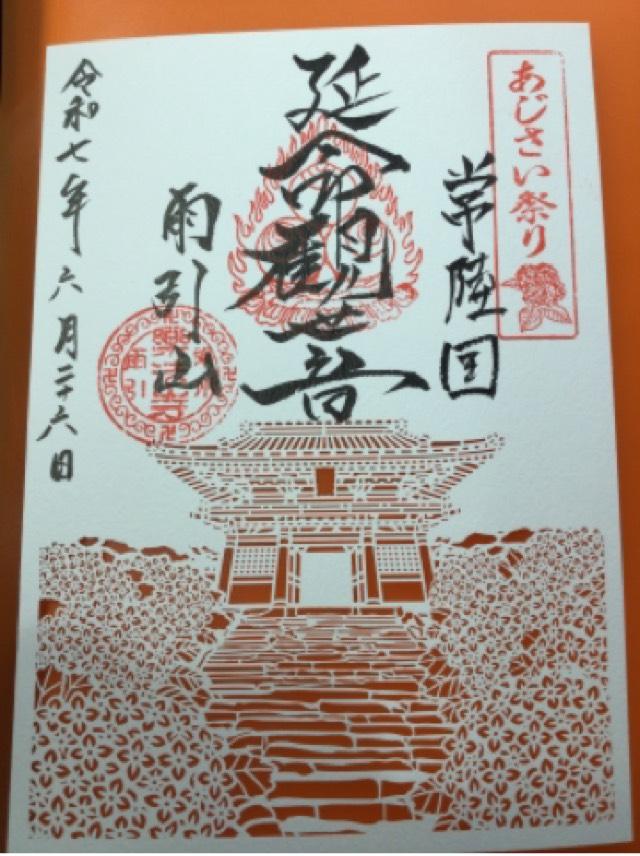 あじさい祭り
常陸国
延命観世音
雨引山
令和七年六月二十六日